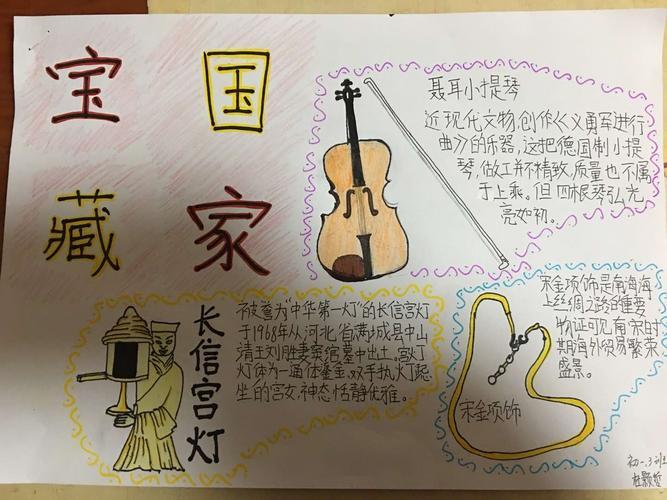 国家
宝藏
聂耳小提琴
近现代文物,创作《义勇军进行
曲》的乐器,这把德国制小提
琴,做工并不精致,质量也不属
于上乘。但四根琴弘光
亮如初。
长信宫灯
被誉为"中华第一灯"的长信宫灯
于1968年从河北省满城县中山
靖王刘胜妻窦绾墓中出土,宫灯
灯体为一通体鎏金、双手执灯跽
坐的宫女,神态恬静优雅。
宋金项饰是南海海
上丝绸之路的重要
物证可见南宋时
期海外贸易繁荣
盛景。
宋金项饰
初一.3班